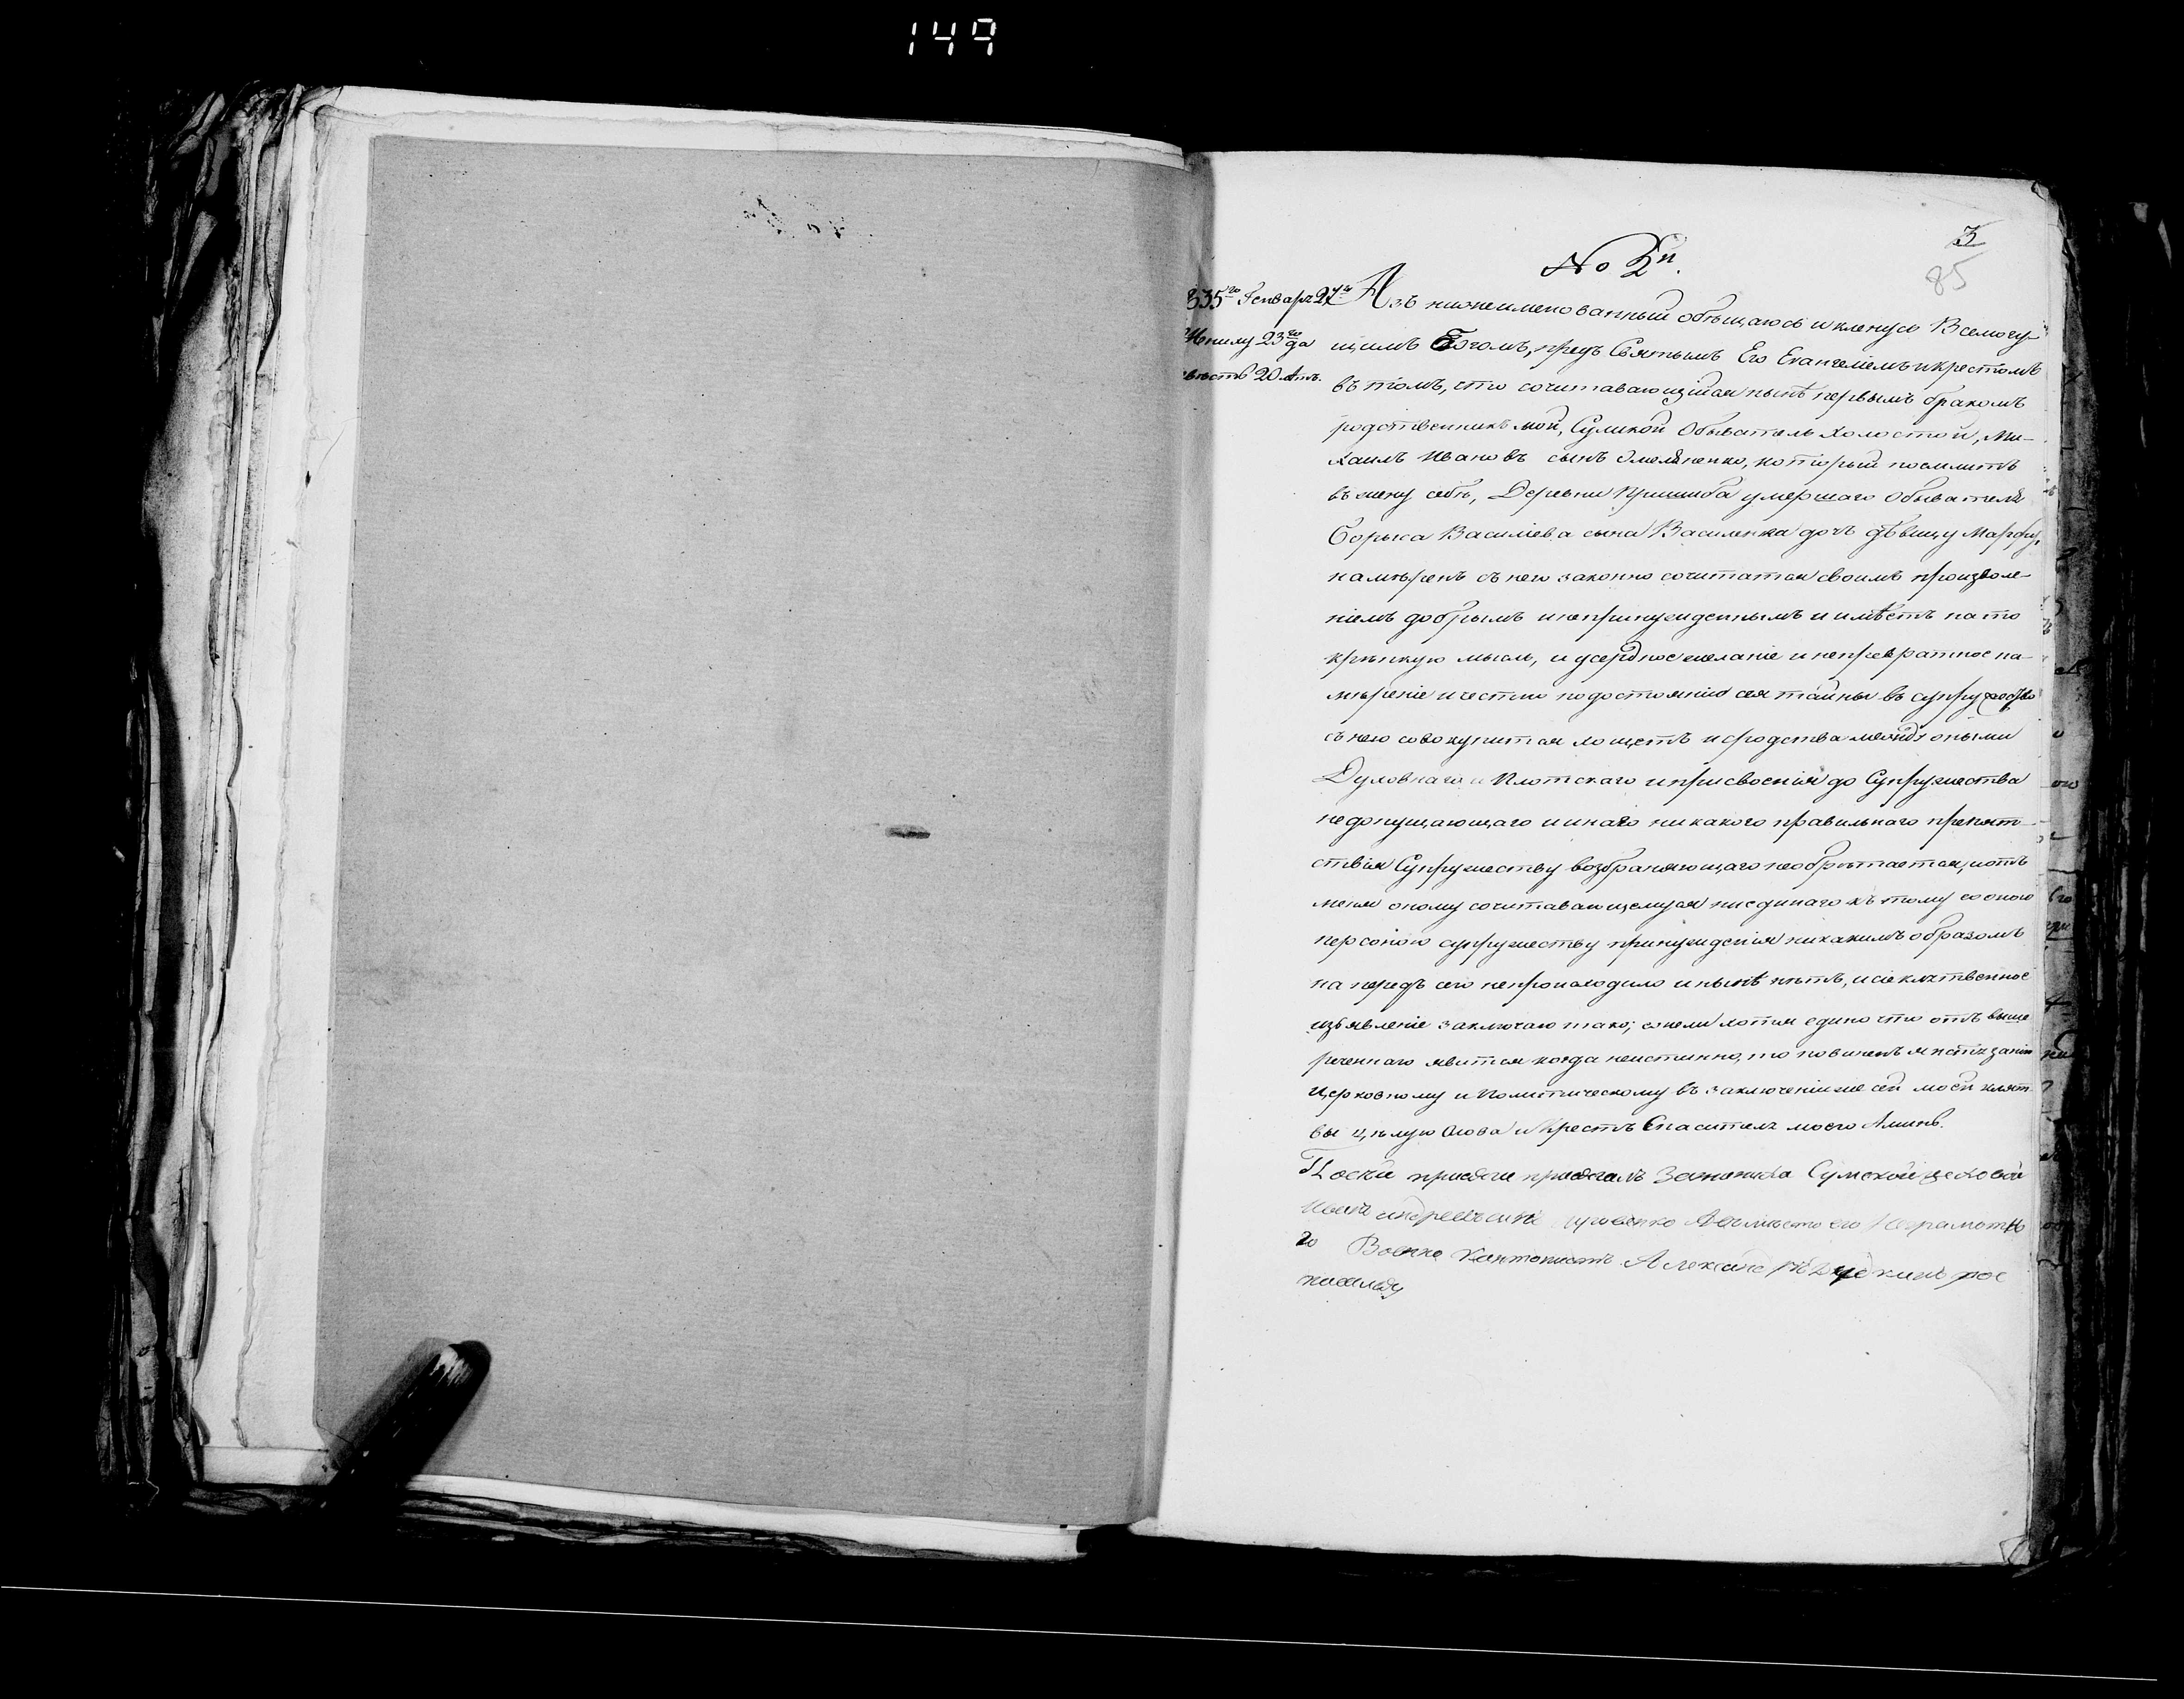 149
3
85
No 2й.
835го Генваря 27го
Жениху 23 года
невѣстѣ 20 лѣтъ.
Азъ нижеименованный обѣщаюсь и кленусь Всемогу-
щимъ Богомъ, предъ Святымъ Его Евангелiемъ и крестомъ
въ томъ, что сочитавающiйся нынѣ первымъ бракомъ
родственникъ мой, Сумской Обыватель холостой, Ми-
хаилъ Ивановъ сынъ Омельяненко, который поемлитъ
въ жену себѣ, Деревни Пришиба умершаго Обывателя
Бориса Василiева сына Василенка дочь дѣвицу Марфу,
намѣренъ съ нею законно сочитатся своимъ произволе-
нiемъ добрымъ и непринужденнымъ и имѣетъ на то
крѣпкую мысль, и усердное желанiе и непревратное на-
мѣренiе и честно по достоянiю сея тайны въ супружество
съ нею совокупится хощетъ и сродства между оными
Духовнаго и Плотскаго и присвоенiя до Супружества
недопущающаго и инаго никакого правильнаго препят-
ствiя Супружеству возбраняющаго необрѣтается, и отъ
меня оному сочитавающемуся ниединаго къ тому со оною
персоною супружеству принужденiя никакимъ образомъ
на передъ сего непроисходило и нынѣ нѣтъ, и сiе клятвенное
изъявленiе заключаю тако; ежели хотя едино что отъ выше
реченнаго явится когда неистинно, то повиненъ я истязанiю
Церковному и Политическому въ заключенiи же сей моей клят-
вы цѣлую Слова и Крестъ Спасителя моего Аминь.
По сей присяги присягалъ Сумской цеховой
Иванъ Андреевъ сынъ а вмѣсто его неграмотно
го Военно Кантонистъ Александръ рос
писался